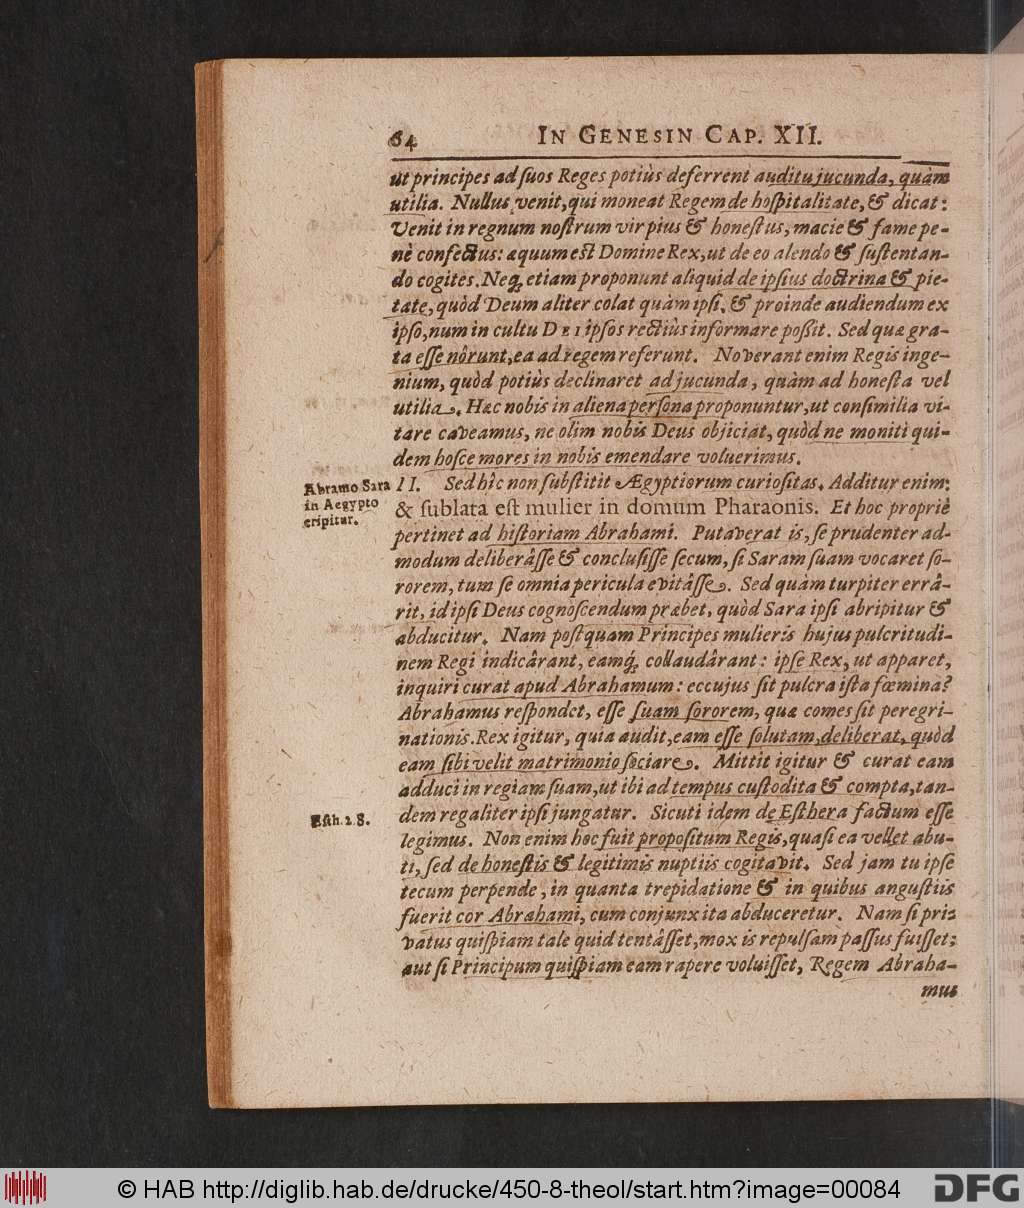 64 IN GENESIN CAP. XII.
ut principes ad ſuos Reges potiùs deferrent auditu jucunda, quàm
utilia. Nullus venit, qui moneat Regem de hoſpitalitate, & dicat:
Venit in regnum noſtrum vir pius & honeſtus, macie & fame pe-
nè confectus: æquum eſt Domine Rex, ut de eo alendo & ſuſtentan-
do cogites. Neq; etiam proponunt aliquid de ipſius doctrina & pie-
tate, quòd Deum aliter colat quàm ipſi, & proinde audiendum ex
ipſo, num in cultu DEI ipſos rectiùs informare poßit. Sed quæ gra-
ta eſſe nôrunt, ea ad regem referunt. Noverant enim Regis inge-
nium, quòd potiùs declinaret ad jucunda, quàm ad honeſta vel
utilia. Hæc nobis in aliena perſona proponuntur, ut conſimilia vi-
tare caveamus, ne olim nobis Deus objiciat, quòd ne moniti qui-
dem hoſce mores in nobis emendare voluerimus.
Abramo Sara
in Aegypto
eripitur.
II. Sed hîc non ſubſtitit Ægyptiorum curioſitas. Additur enim:
& ſublata eſt mulier in domum Pharaonis. Et hoc propriè
pertinet ad hiſtoriam Abrahami. Putaverat is, ſe prudenter ad-
modum deliberâſſe & concluſiſſe ſecum, ſi Saram ſuam vocaret ſo-
rorem, tum ſe omnia pericula evitâſſe. Sed quàm turpiter errâ-
rit, id ipſi Deus cognoſcendum præbet, quòd Sara ipſi abripitur &
abducitur. Nam poſtquam Principes mulieris hujus pulcritudi-
nem Regi indicârant, eamq́; collaudârant: ipſe Rex, ut apparet,
inquiri curat apud Abrahamum: eccujus ſit pulcra iſta fœmina?
Abrahamus reſpondet, eſſe ſuam ſororem, quæ comes ſit peregri-
nationis. Rex igitur, quia audit, eam eſſe ſolutam, deliberat, quòd
eam ſibi velit matrimonio ſociare. Mittit igitur & curat eam
adduci in regiam ſuam, ut ibi ad tempus cuſtodita & compta, tan-
Eſth. 2. 8.
dem regaliter ipſi jungatur. Sicuti idem de Eſthera factum eſſe
legimus. Non enim hoc fuit propoſitum Regis, quaſi ea vellet abu-
ti, ſed de honeſtis & legitimis nuptiis cogitavit. Sed jam tu ipſe
tecum perpende, in quanta trepidatione & in quibus anguſtiis
fuerit cor Abrahami, cum conjunx ita abduceretur. Nam ſi pri-
vatus quiſpiam tale quid tentâſſet, mox is repulſam paſſus fuiſſet:
aut ſi Principum quiſpiam eam rapere voluiſſet, Regem Abraha-
mus
© HAB http://diglib.hab.de/drucke/450-8-theol/start.htm?image=00084
DFG